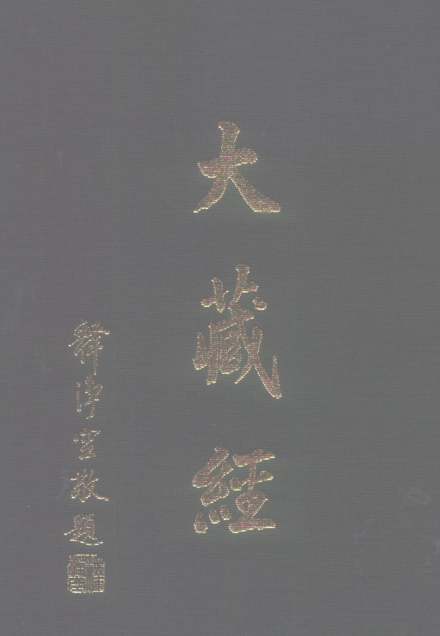 大藏經
釋淨空敬題